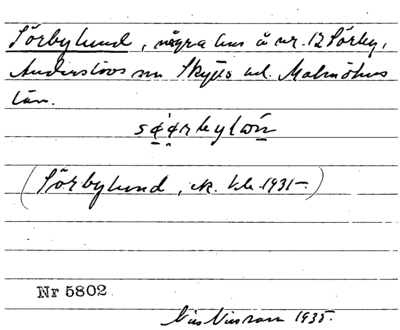 Sörbylund, några hus å nr. 12 Sörby,
Anderslövs sn Skytts hd. Malmöhus
län.
(Sörbylund, ek. kb. 1931–)
Nr 5802
Nils Nilsson 1935.